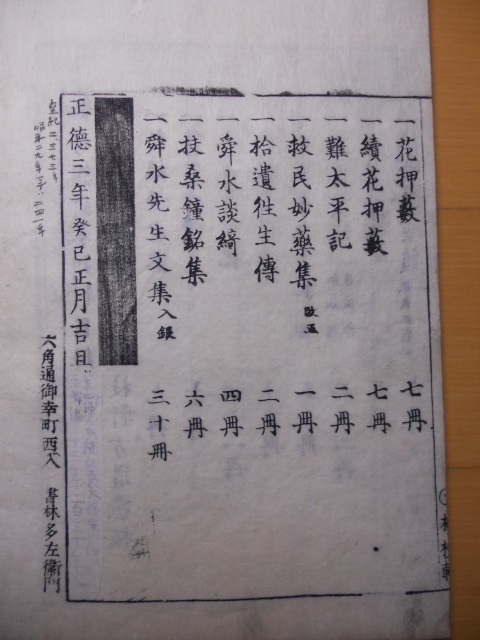 一花押藪 七冊
一續花押藪 七冊
一難太平記 二冊
一救民妙藥集 改正 一冊
一拾遺徃生傳 二冊
一舜水談綺 四冊
一扶桑鐘銘集 六冊
一舜水先生文集 入銀 三十冊
正德三年癸巳正月吉旦
六角通御幸町西入 書林 多左衞門
皇紀二三七三年